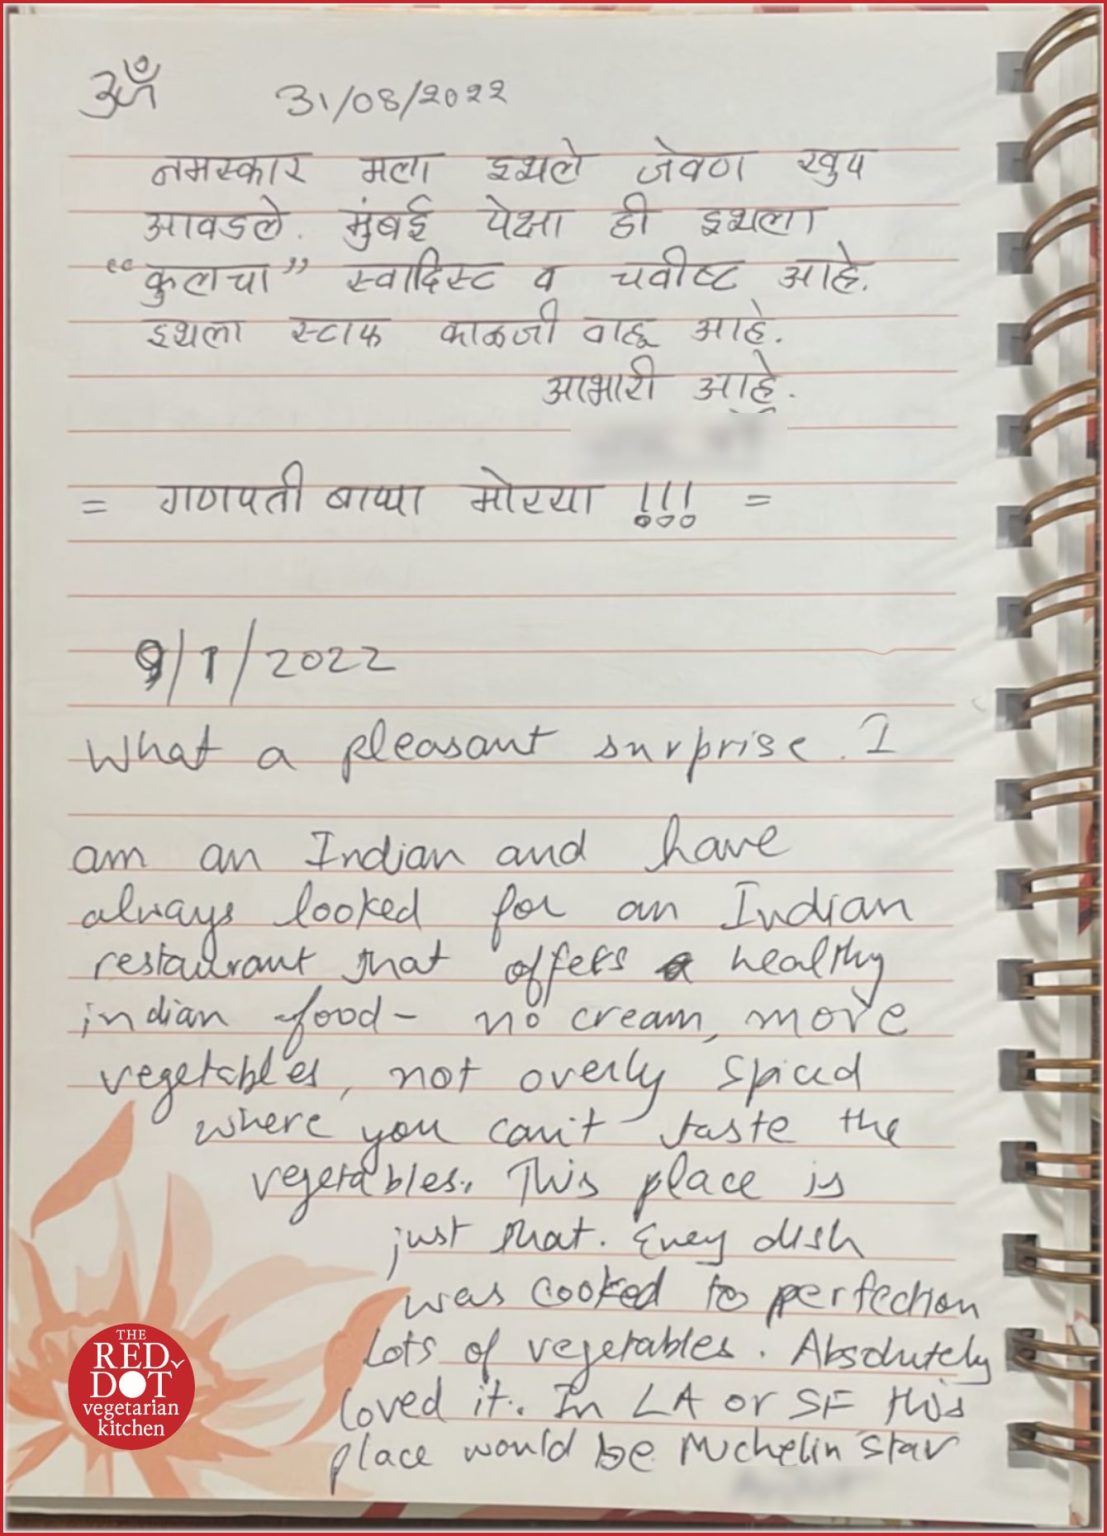 ॐ 31/08/२०२२
नमस्कार मला इथले जेवण खुप
आवडले. मुंबई पेक्षा ही इथला
“कुलचा” स्वादिस्ट व चवीष्ट आहे.
इथला स्टाफ काळजी वाहू आहे.
आभारी आहे.
= गणपती बाप्पा मोरया !!! =
9/1/2022
What a pleasant surprise. I
am an Indian and have
always looked for an Indian
restaurant that offers a healthy
indian food- no cream, more
vegetables, not overly spiced
where you can't taste the
vegetables. This place is
just that. Every dish
was cooked to perfection
Lots of vegetables. Absolutely
loved it. In LA or SF this
place would be Michelin star
THE
RED
DOT
vegetarian
kitchen